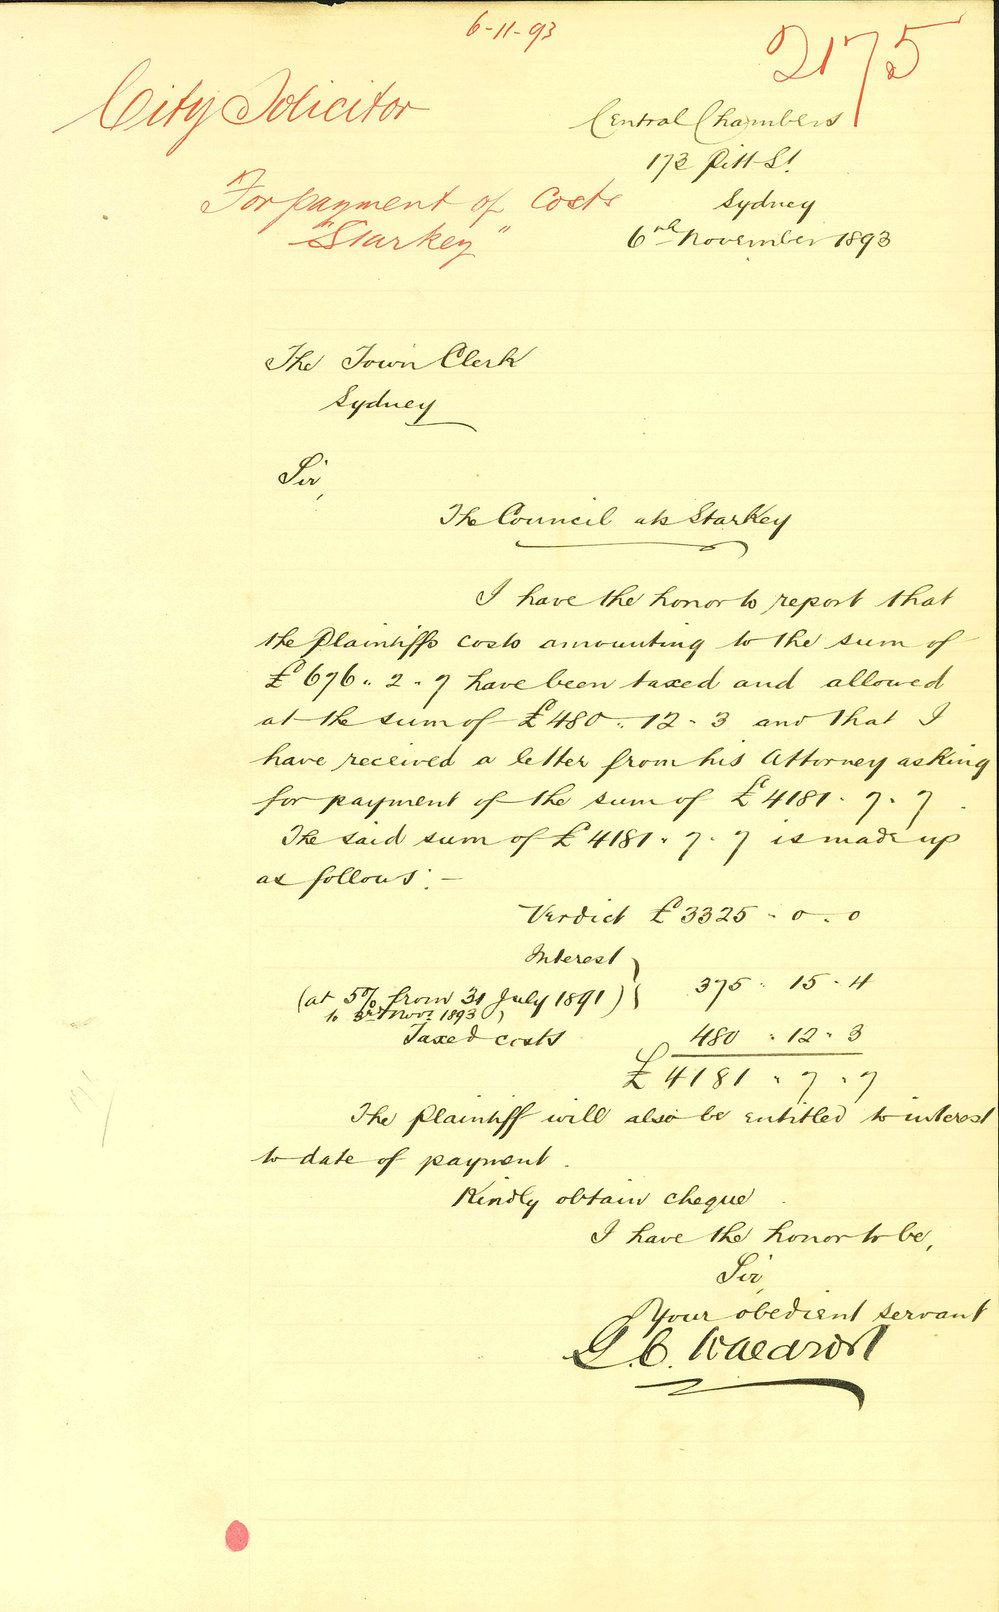 6-11-93
2175
City Solicitor
Central Chambers
173 Pitt St
Sydney
6th November 1893
For payment of Costs
"Starkey"
The Town Clerk
Sydney
Sir,
The Council ats Starkey
I have the honor to report that
the Plaintiffs costs amounting to the sum of
£676. 2. 7 have been taxed and allowed
at the sum of £480. 12. 3 and that I
have received a letter from his Attorney asking
for payment of the sum of £4181. 7. 7.
The said sum of £4181. 7. 7 is made up
as follows: -
Verdict £3325. 0. 0
Interest
(at 5% from 31 July 1891) 375. 15. 4
to 3rd Novr. 1893)
Taxed costs 480. 12. 3
£4181. 7. 7
The Plaintiff will also be entitled to interest
to date of payment.
Kindly obtain cheque.
I have the honor to be,
Sir,
Your obedient servant